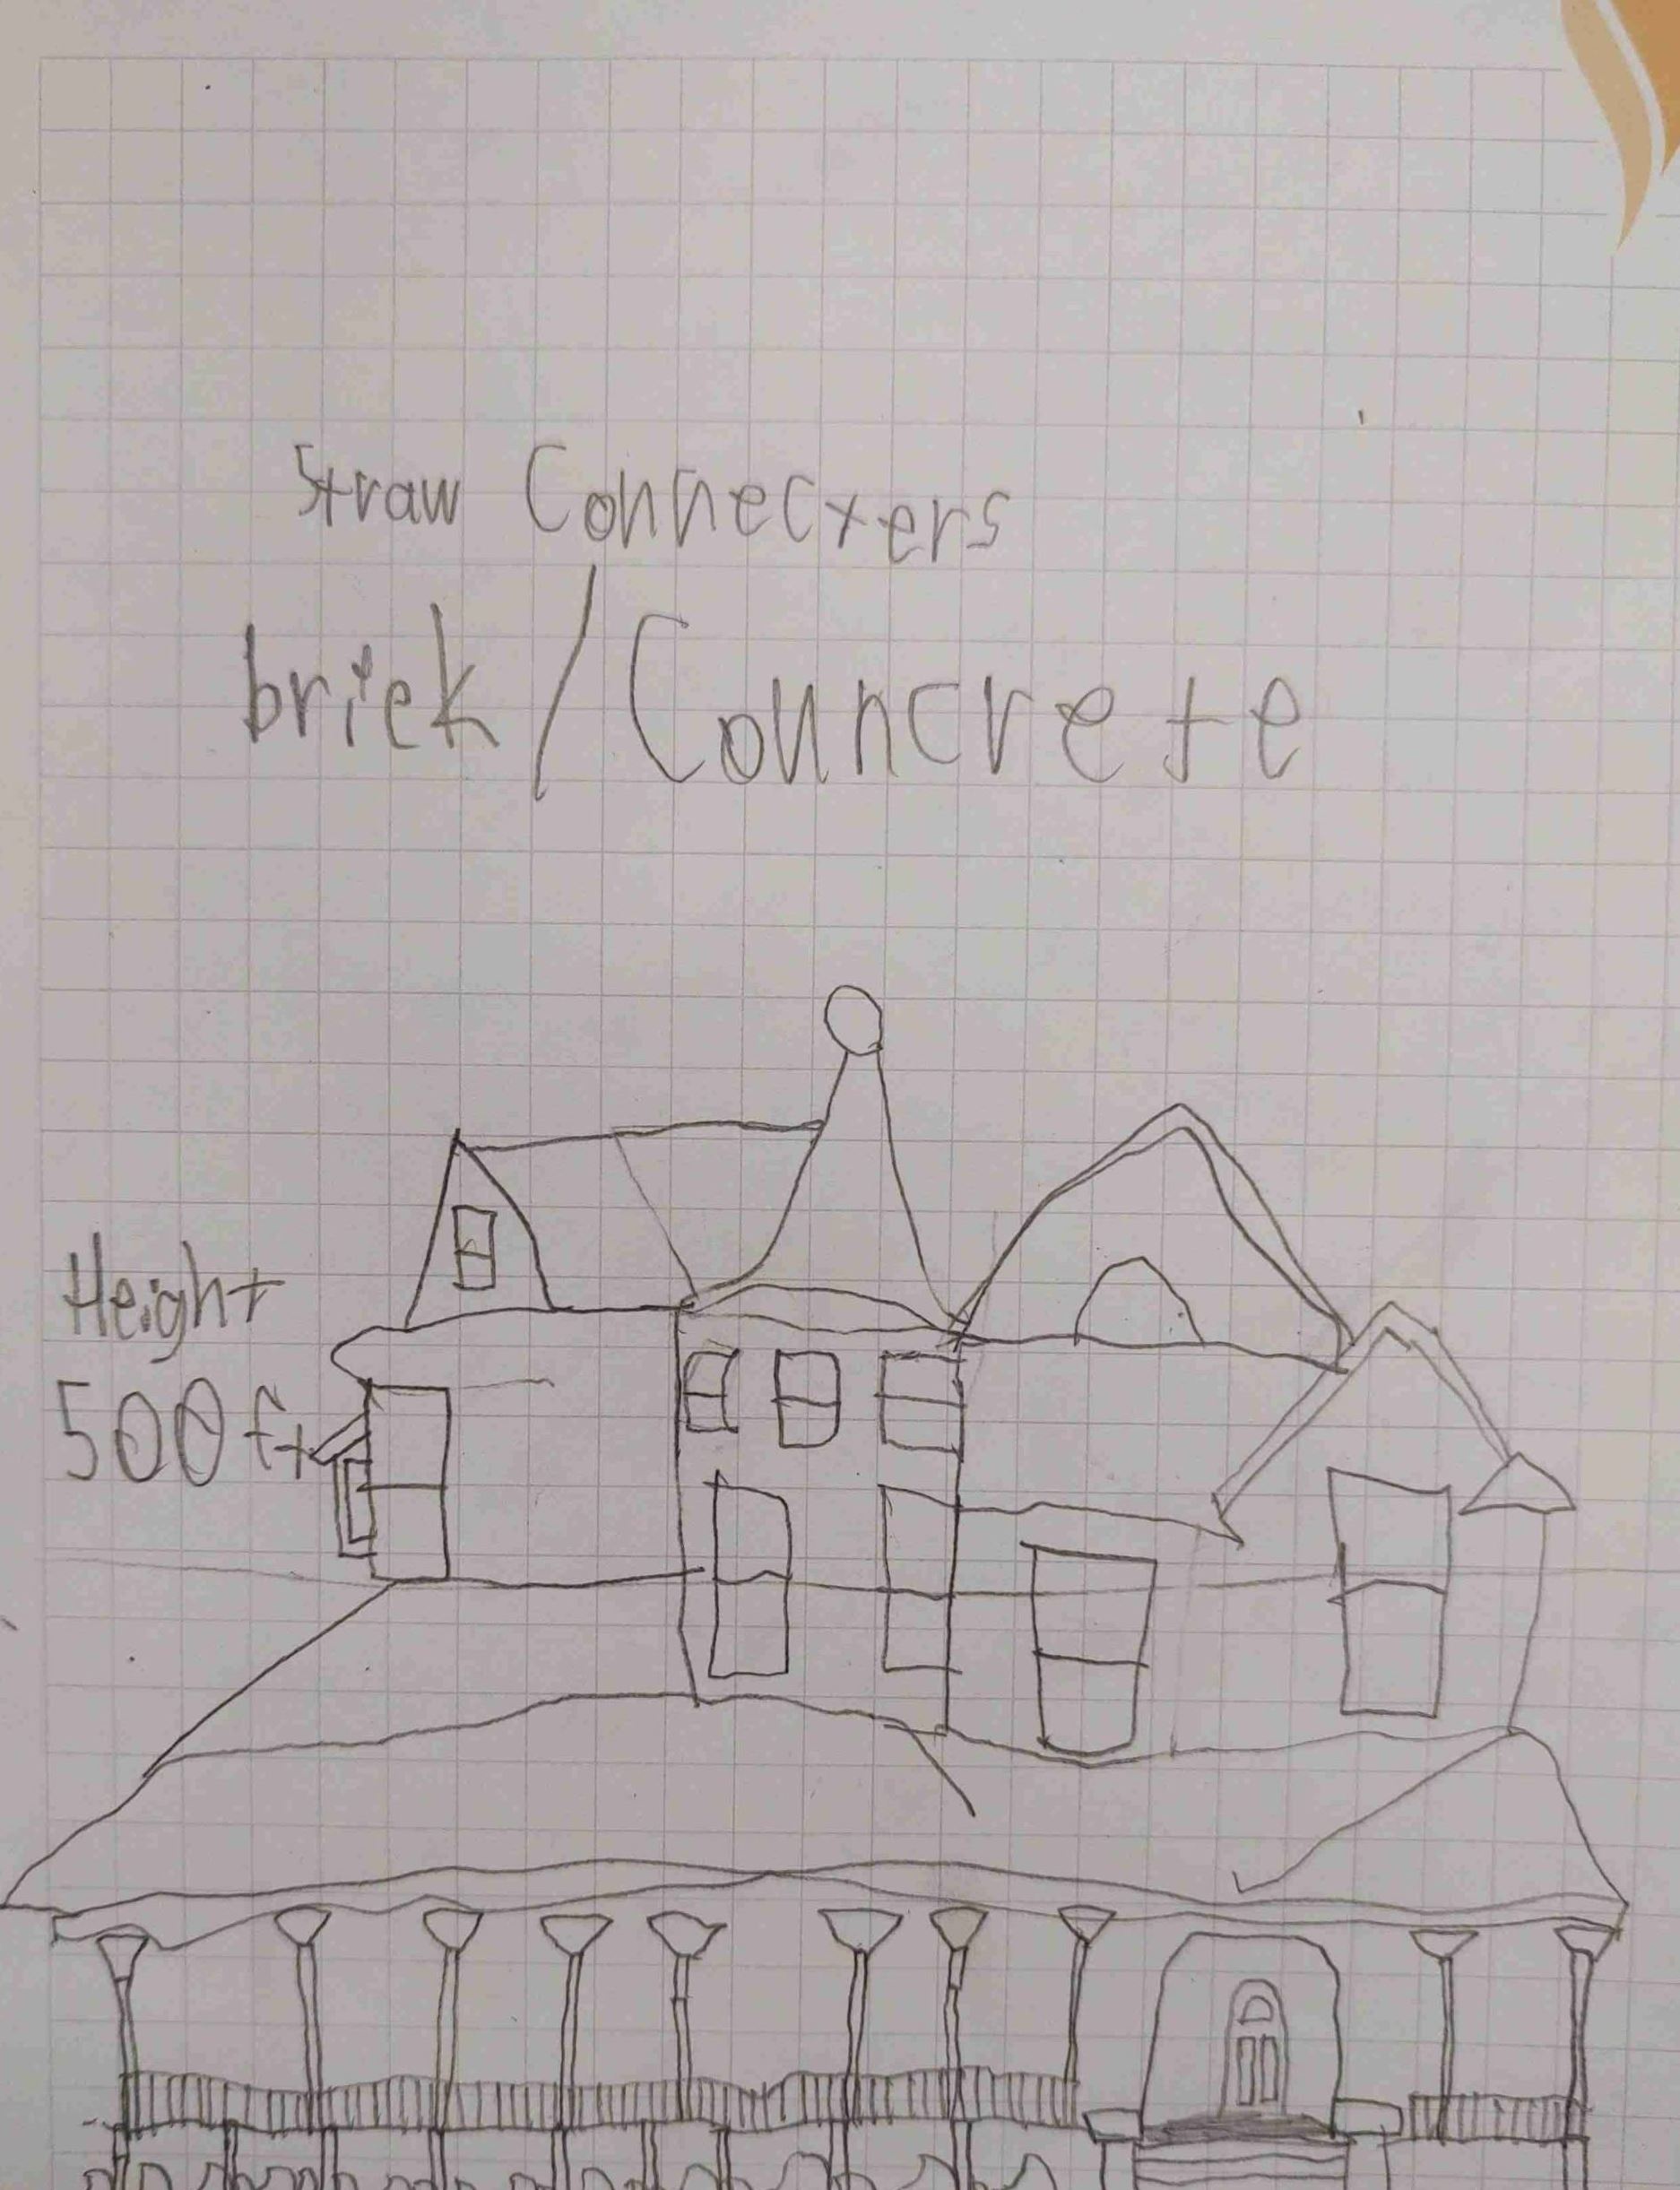 Straw Connecters
brick/Councrete
Height
500 ft